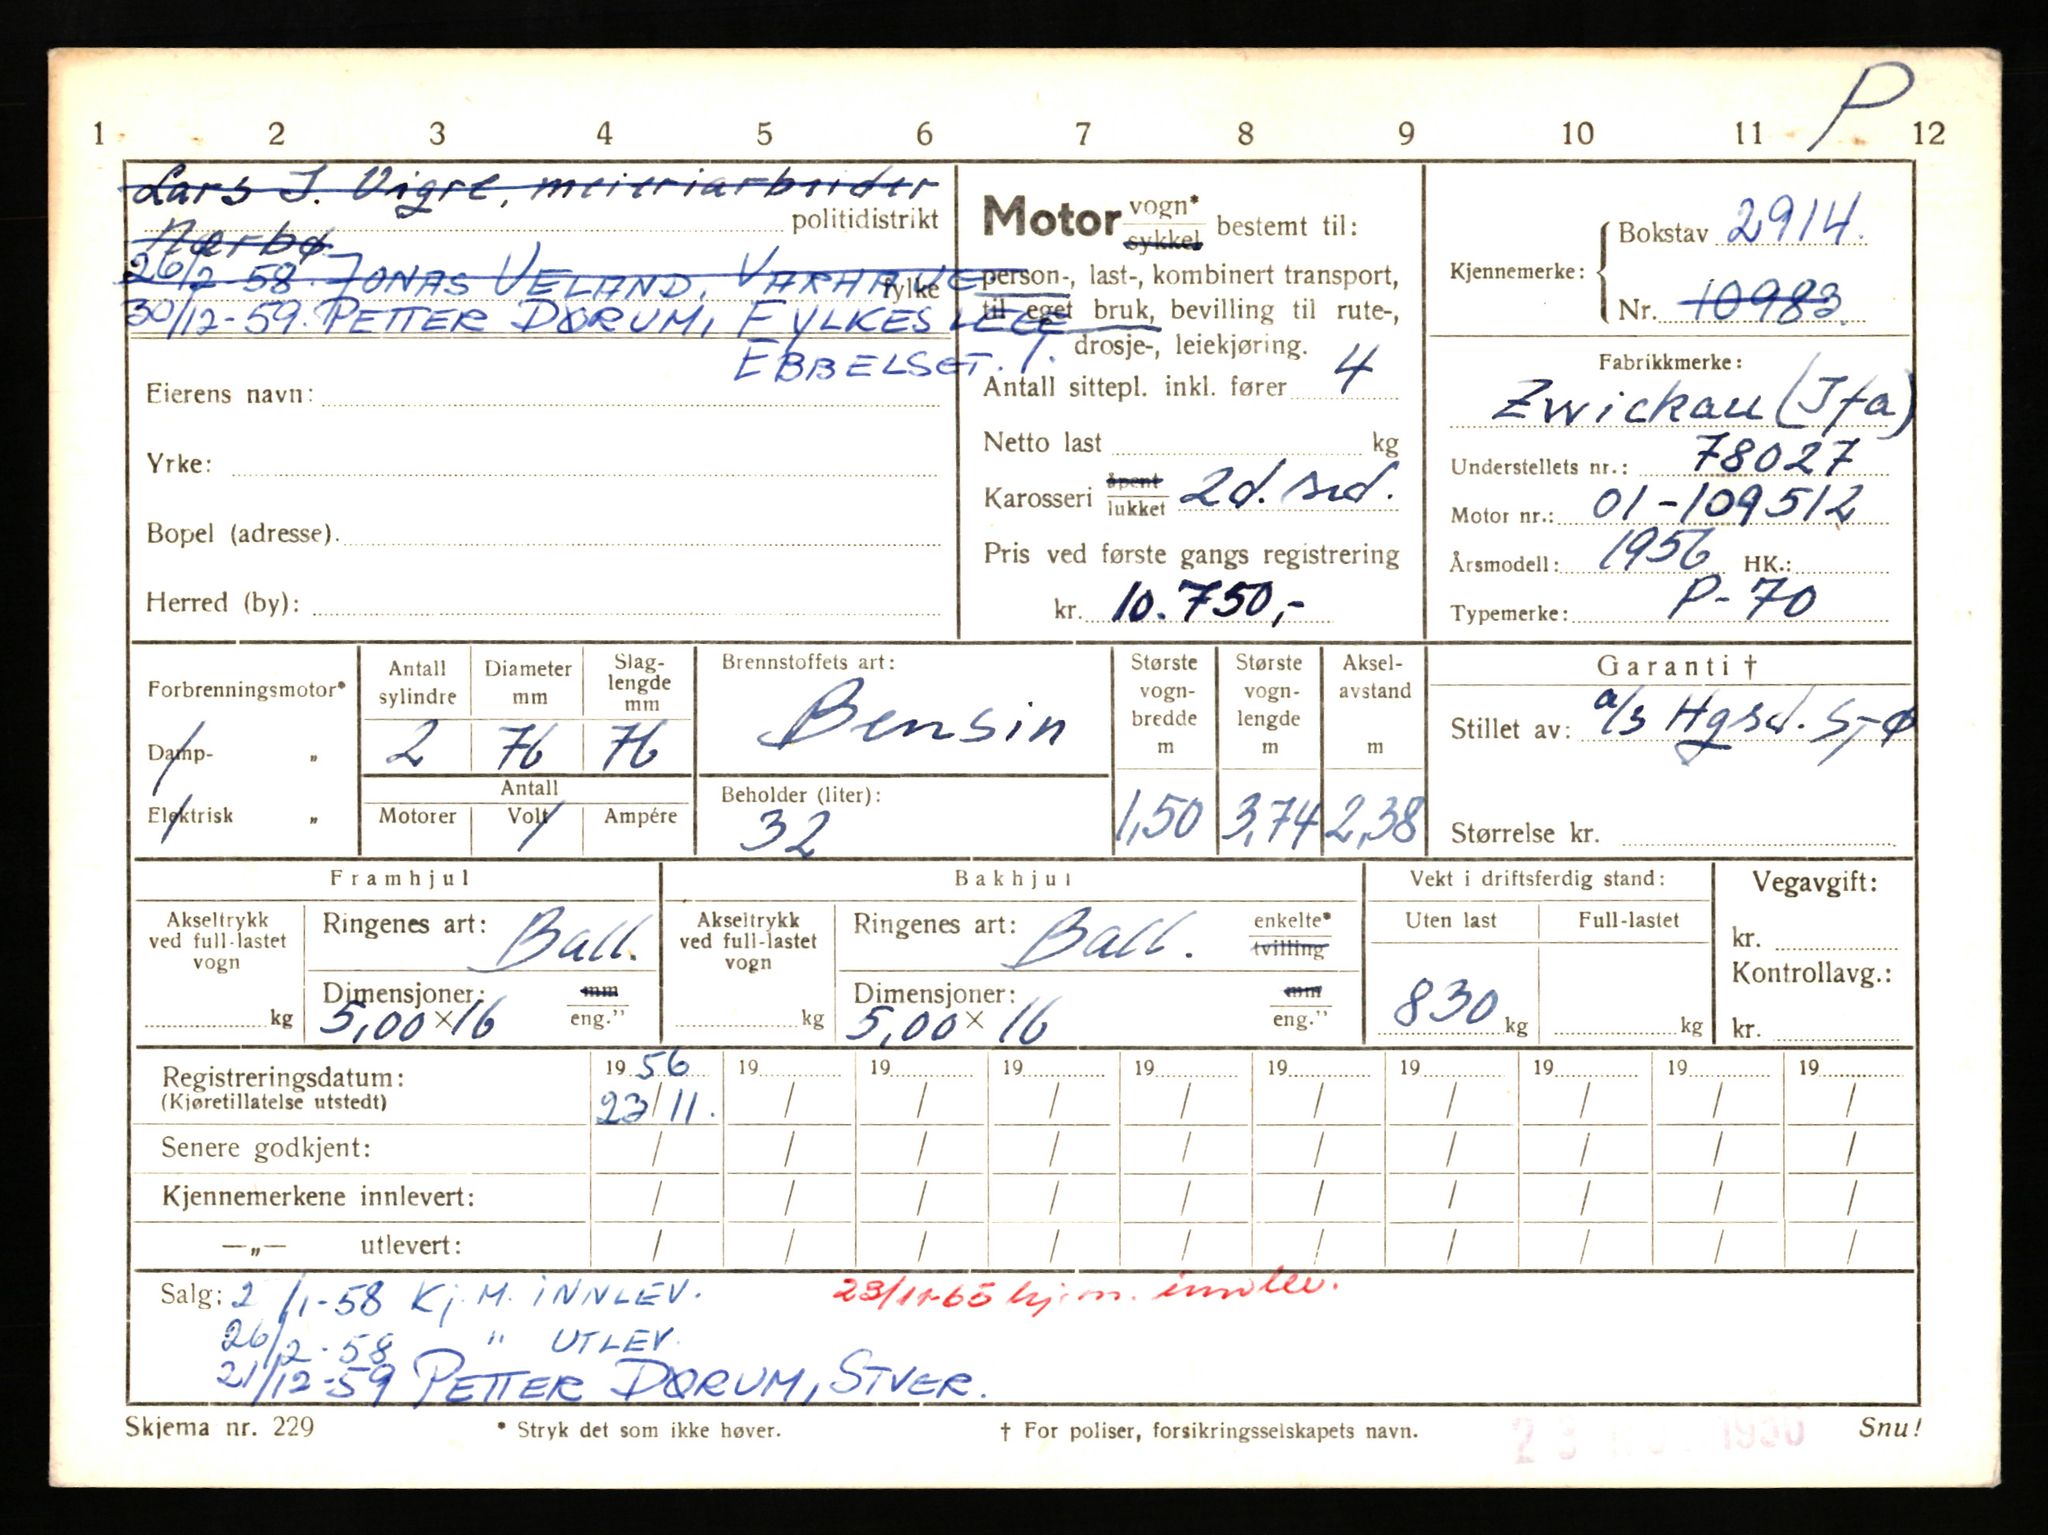 P
1 2 3 4 5 6 7 8 9 10 11 12
Lars J. Vigre, meieriarbeider
politidistrikt
Nærbø
26/2-58. JONAS VELAND, VARHAUG
fylke
30/12-59. PETTER DØRUM, FYLKESLEGE
EBBELSGT. 1.
Eierens navn:
Yrke:
Bopel (adresse).
Herred (by):
Motor vogn* sykkel bestemt til:
person-, last-, kombinert transport,
til eget bruk, bevilling til rute-,
drosje-, leiekjøring.
Antall sittepl. inkl. fører 4
Netto last kg
Karosseri åpent lukket 2d. sed.
Pris ved første gangs registrering
kr. 10.750,-
Kjennemerke: Bokstav 2914.
Nr. 10983
Fabrikkmerke:
Zwickau (Ifa)
Understellets nr.: 78027
Motor nr.: 01-109512
Årsmodell: 1956 HK.:
Typemerke: P-70
Forbrenningsmotor*
Damp- „
Elektrisk „
Antall sylindre Diameter mm Slag-lengde mm
2 76 76
Antall
Motorer Volt Ampére
Brennstoffets art:
Bensin
Beholder (liter):
32
Største vogn-bredde m Største vogn-lengde m Aksel-avstand m
1,50 3,74 2,38
Garanti †
Stillet av: a/s Hgsd. Sj-ø
Størrelse kr.
Framhjul
Akseltrykk ved full-lastet vogn
kg
Ringenes art: Ball.
Dimensjoner: mm eng."
5,00 x 16
Bakhjul
Akseltrykk ved full-lastet vogn
kg
Ringenes art: Ball. enkelte* tvilling
Dimensjoner: mm eng."
5,00 x 16
Vekt i driftsferdig stand:
Uten last Full-lastet
830 kg kg
Vegavgift:
kr.
Kontrollavg.:
kr.
Registreringsdatum: 19 56 19 19 19 19 19 19 19 19 19
(Kjøretillatelse utstedt) 23/11. / / / / / / / / /
Senere godkjent: / / / / / / / / / /
Kjennemerkene innlevert: / / / / / / / / / /
—„— utlevert: / / / / / / / / / /
Salg: 2/1-58 Kj.M. INNLEV. 23/11-65 kj.m. innlev.
26/2-58 " UTLEV.
21/12-59 PETTER DØRUM, STVGR.
Skjema nr. 229 * Stryk det som ikke høver. † For poliser, forsikringsselskapets navn. Snu!